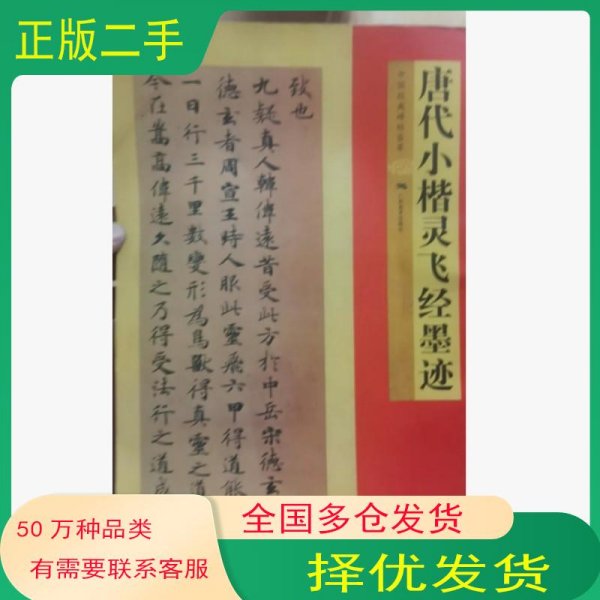 正版二手
唐代小楷灵飞经墨迹
致也
九疑真人韓偉遠昔受此方於中岳宋德玄
德玄者周宣王時人服此靈飛六甲得道能
一日行三千里數變形為鳥獸得真靈之道
今在嵩高偉遠久隨之乃得受法行之道成
50万种品类
有需要联系客服
全国多仓发货
择优发货